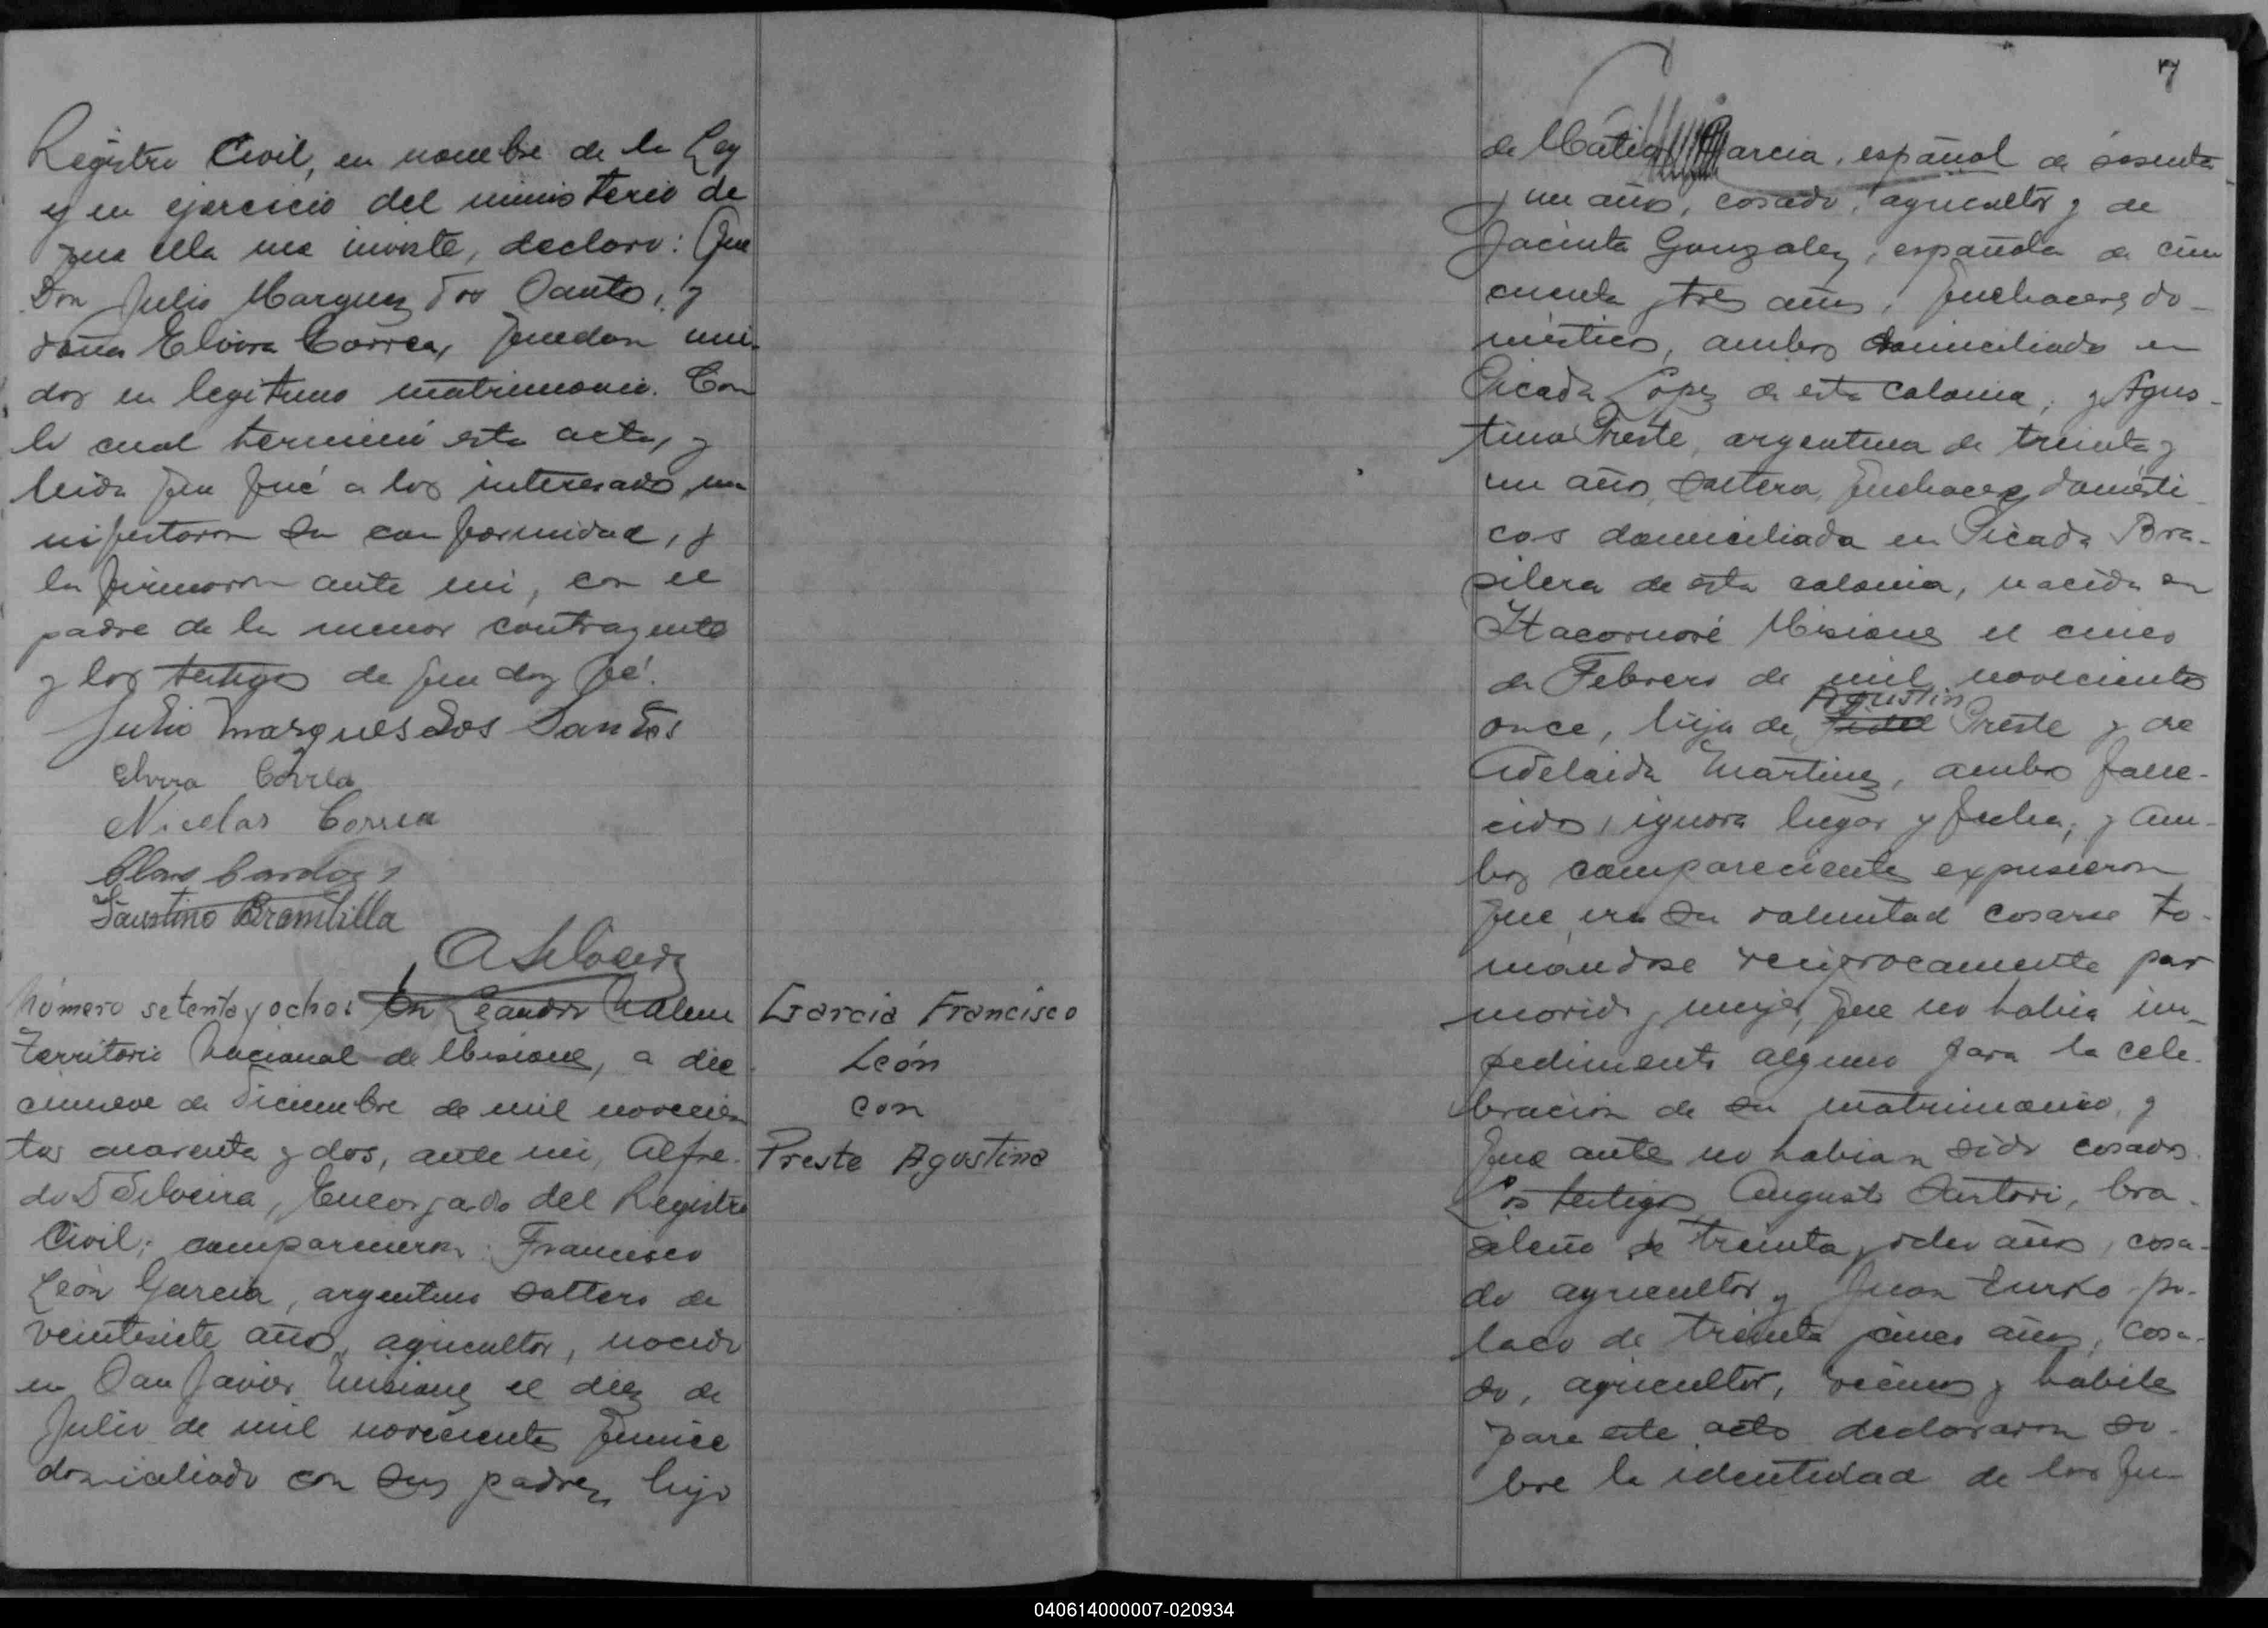 Registro Civil, en nombre de la Ley
y en ejercicio del ministerio de
que ella me inviste, declaro: Que
Don Julio Marquez Dos Santos, y
doña Elvira Correa, quedan uni-
dos en legitimo matrimonio. Con
lo cual terminó esta acta, y
leida que fué a los interesados, ma
nifestaron su conformidad, y
la firmaron ante mi, con el
padre de la menor contrayente
y los testigos de que doy fé.
Julio Marques Dos Santos
Elvira Correa
Nicolas Correa
Faustino Brambilla
Número setenta y ocho: En Leandro N Alem
Territorio Nacional de Misiones, a die
cinueve de Diciembre de mil novecien
tos cuarenta y dos, ante mi, Alfre-
do D Silveira, Encargado del Registro
Civil; comparecieron: Francisco
León Garcia, argentino soltero de
veintesiete años, agricultor, nacido
en San Javier Misiones el diez de
Julio de mil novecientos quince
domiciliado con sus padres, hijo
Garcia Francisco
León
con
Preste Agostina
7
de Matias Garcia, español de sesenta
y un años, casado, agricultor y de
Jacinta Gonzalez, española de cin
cuenta y tres años, quehaceres do-
mésticos, ambos domiciliados en
Picada Lopez de esta colonia; y Agus-
tina Preste, argentina de treinta y
un años, soltera, quehaceres domésti
cos domiciliada en Picada Bra-
silera de esta colonia, nacida en
Itacoruoré Misiones el cinco
de Febrero de mil novecientos
Agustin
once, hija de Fidel Preste y de
Adelaida Martinez, ambos falle-
cidos, ignora lugar y fecha; y am-
bos comparecientes expusieron
que era su voluntad casarse to-
mándose reciprocamente por
marido y mujer, que no habia im-
pedimento alguno para la cele-
bración de su matrimonio, y
que antes no habian sido casados.
Los testigos Augusto Sartori, bra-
sileño de treinta y ocho años, casa-
do agricultor y Juan Zurko po-
laco de treinta y cinco años, casa-
do, agricultor, vecinos y habiles
para este acto declararon so-
bre la identidad de los que
040614000007-020934